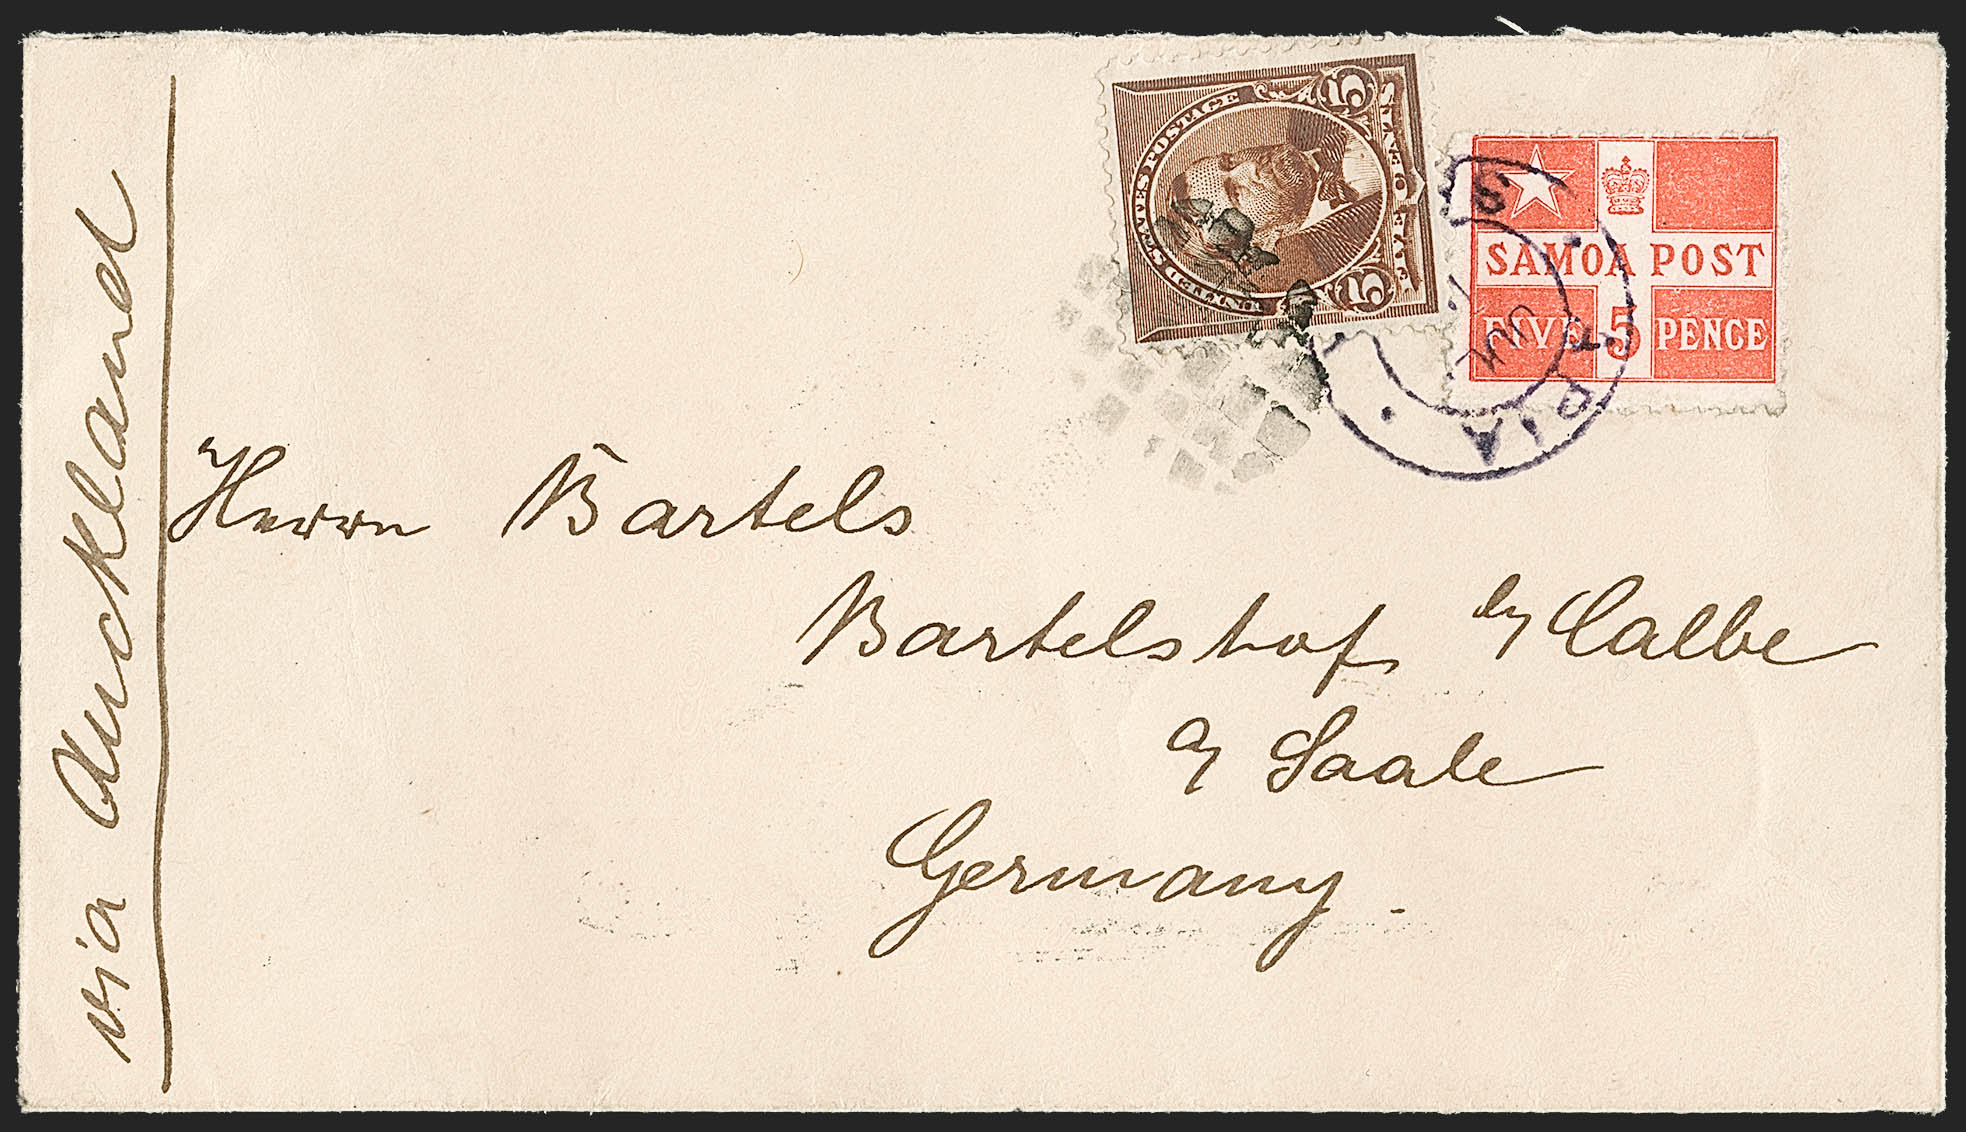 via Auckland
UNITED STATES POSTAGE
5 5
SAMOA POST
FIVE 5 PENCE
APIA
Herrn Bartels
Bartelshof b/ Calbe
a/ Saale
Germany.